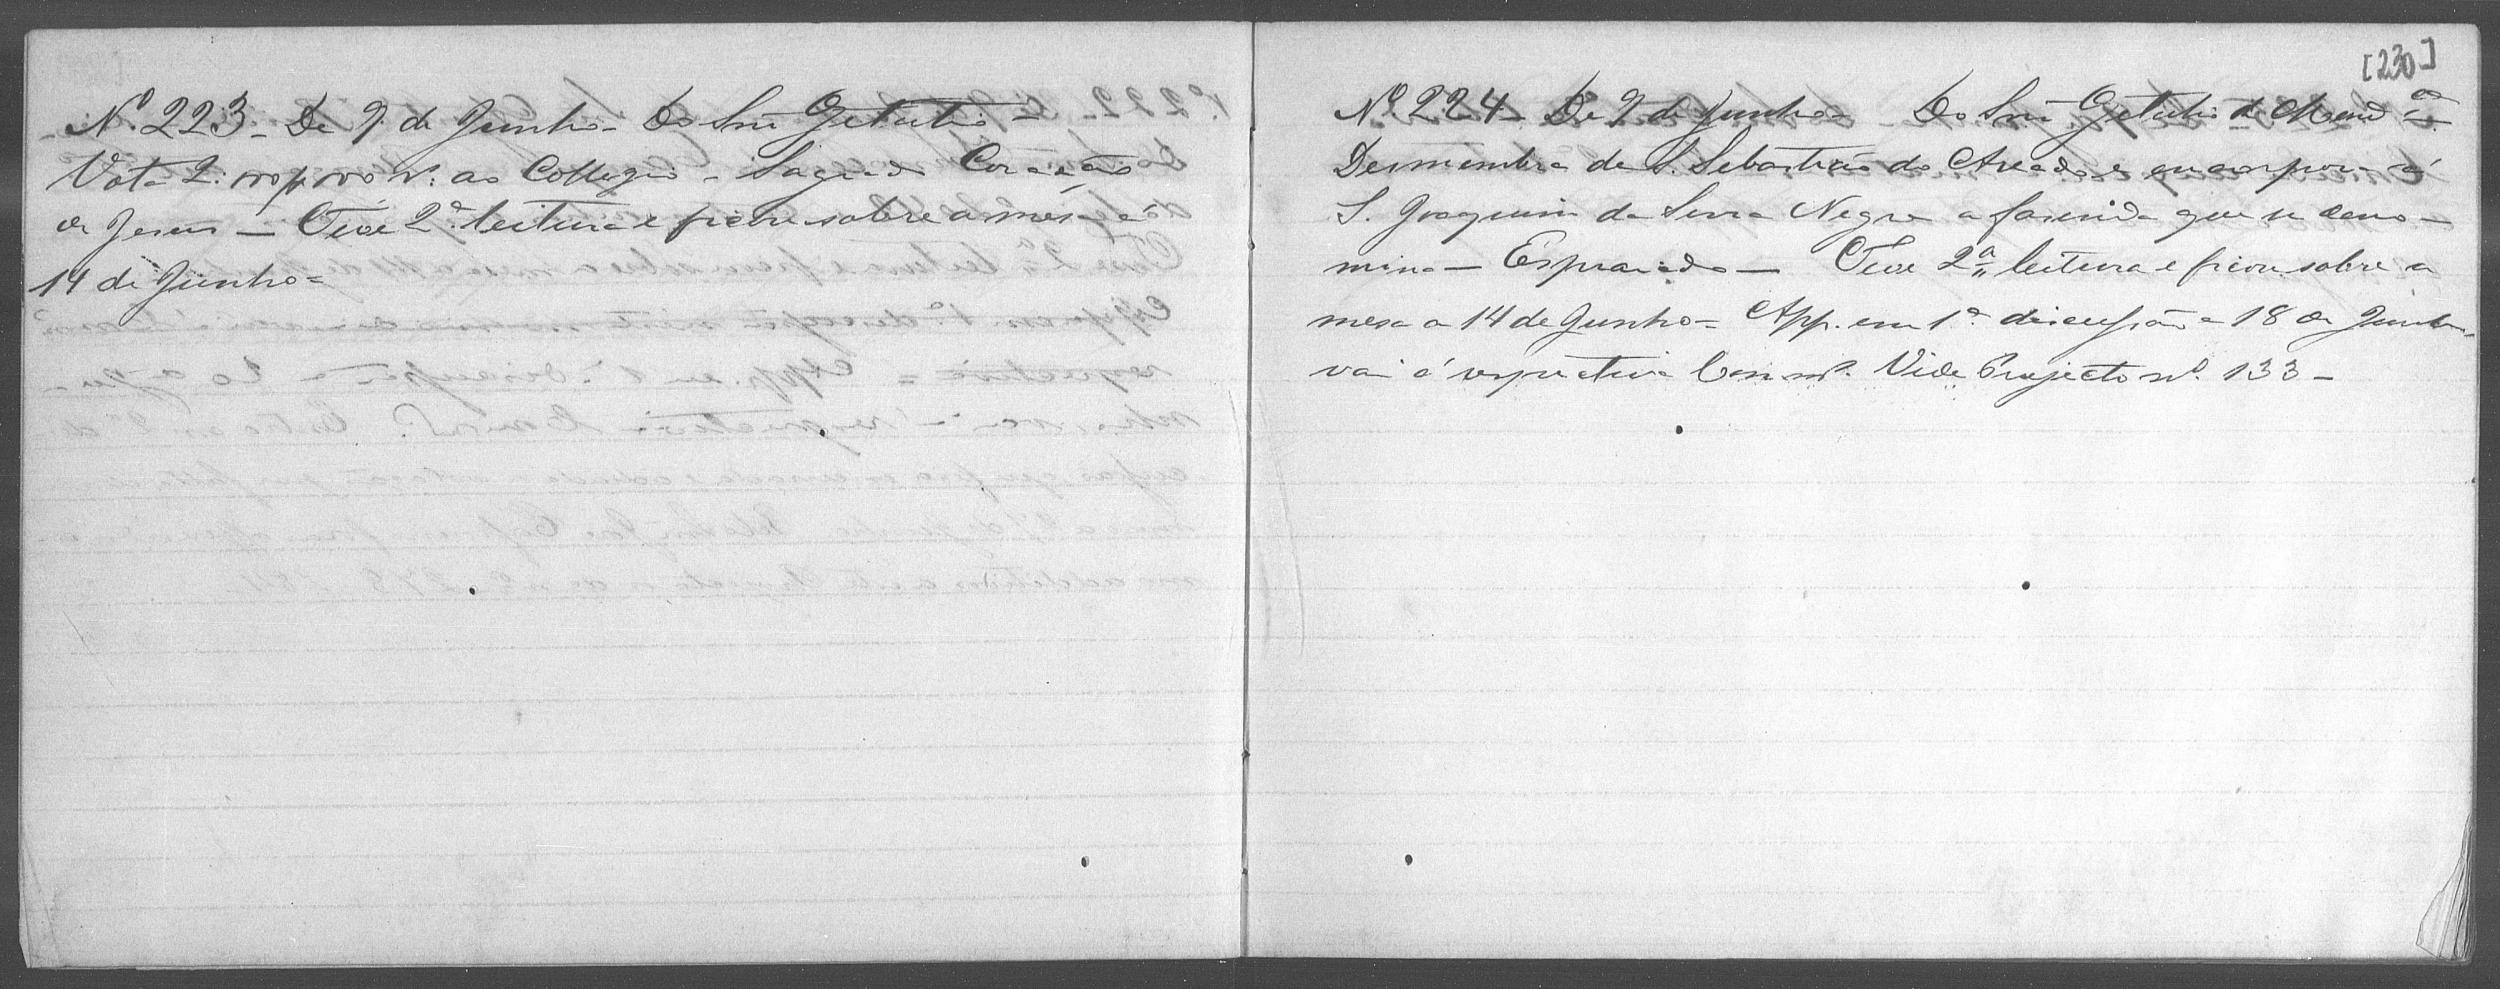 Nº 223 - De 9 de Junho - Do Snr Getulio -
Vota 2:000$000 rs. ao Collegio - Sagrado Coração
de Jesus - Teve 2ª leitura e ficou sobre a mesa á
14 de Junho =
[230]
Nº 224 - De 9 de Junho - Do Snr Getulio de
Desmembra de S. Sebastião do Areado e encorpora á
S. Joaquim da Serra Negra a fasenda que se deno-
mina - Espraiado - Teve 2ª leitura e ficou sobre a
mesa a 14 de Junho = App. em 1ª discussão a 18 de Junho,
vai á respectiva Commº. Vide Projecto nº 133 -